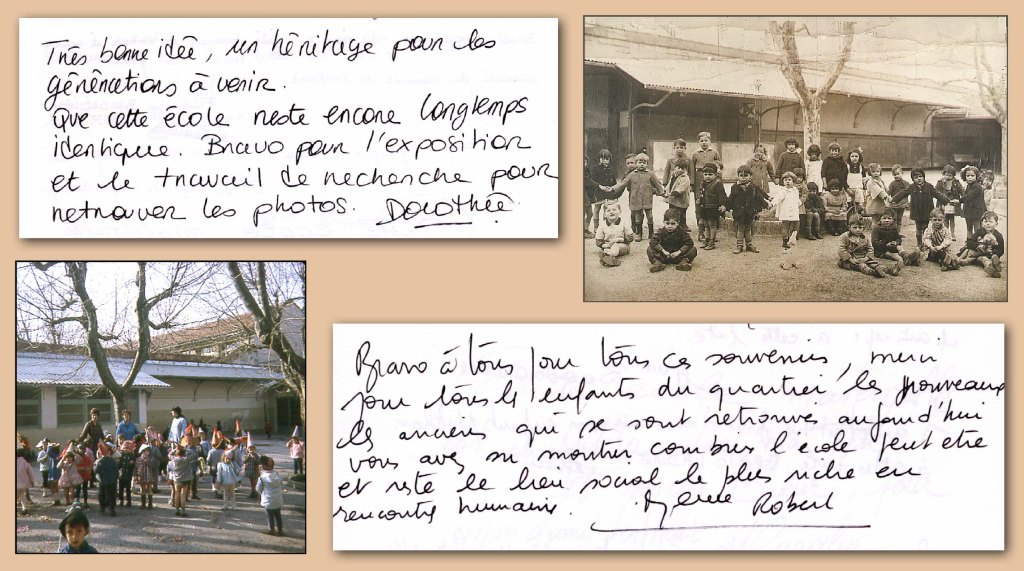 Très bonne idée, un héritage pour les
générations à venir.
Que cette école reste encore longtemps
identique. Bravo pour l'exposition
et le travail de recherche pour
retrouver les photos. Dorothée
Bravo à tous pour tous ces souvenirs, merci
pour tous les enfants du quartier, les nouveaux
les anciens qui se sont retrouvés aujourd'hui
vous avez su montrer combien l'école peut être
et reste le lieu social le plus riche en
rencontres humaines. Robert